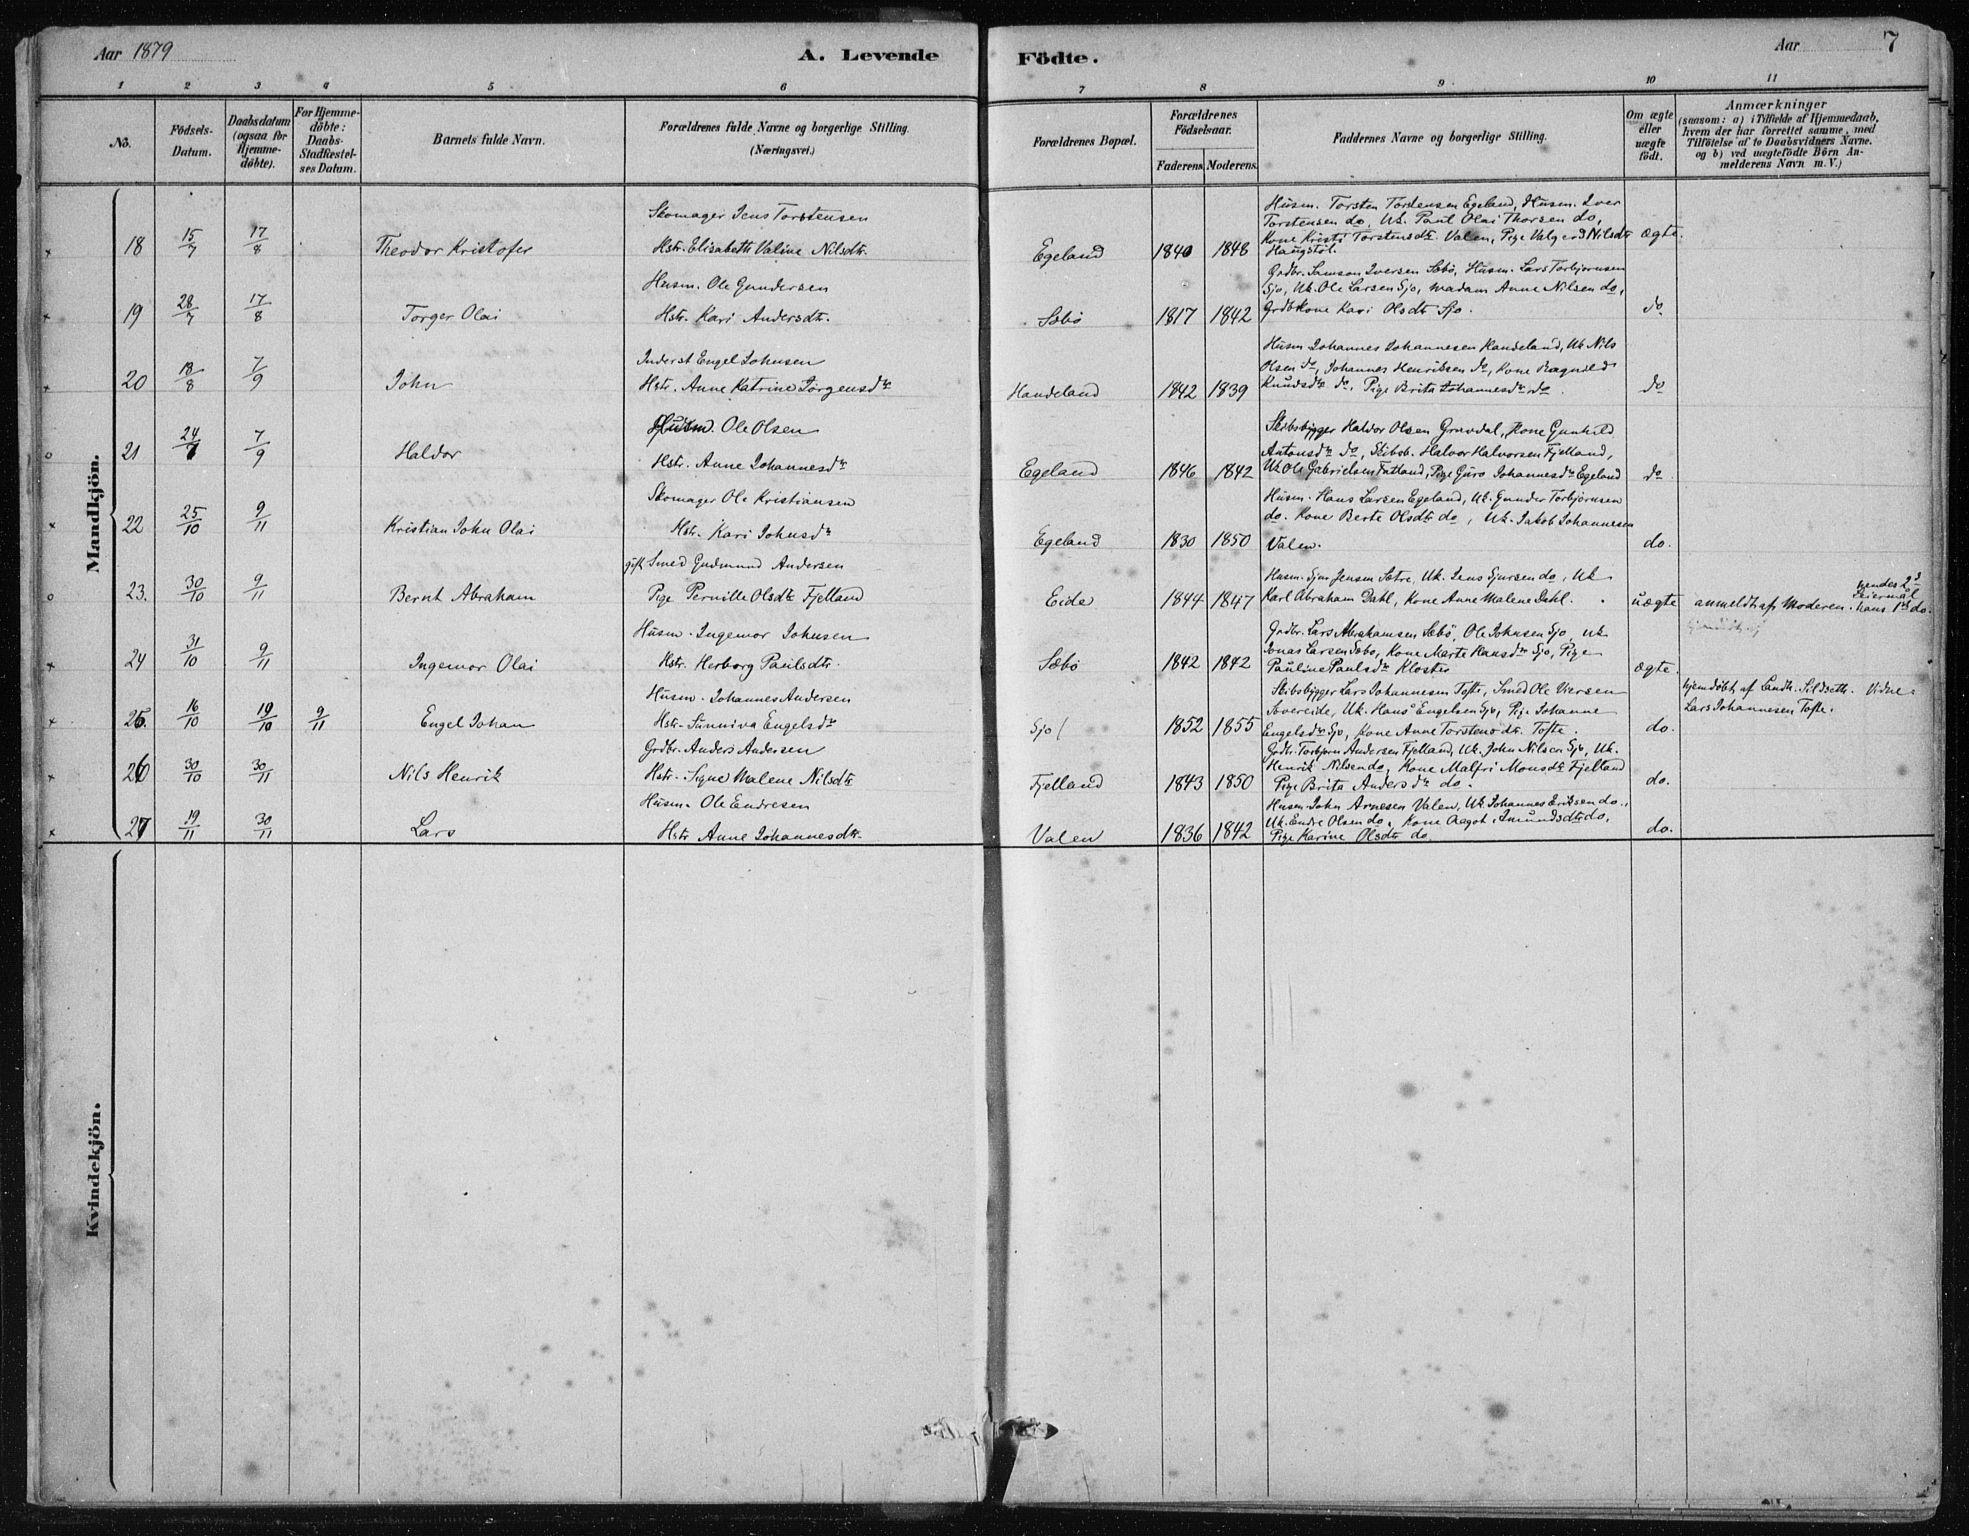 Aar 1879
A. Levende Födte.
Aar 7
1 2 3 4 5 6 7 8 9 10 11
No.
Födsels-
Datum.
Daabsdatum
(ogsaa for
Hjemme-
döbte).
For Hjemme-
döbte:
Daabs-
Stadfestel-
ses Datum.
Barnets fulde Navn.
Forældrenes fulde Navne og borgerlige Stilling.
(Næringsvei.)
Forældrenes Bopæl.
Forældrenes
Födselsaar.
Faderens Moderens.
Faddernes Navne og borgerlige Stilling.
Om ægte
eller
uægte
födt.
Anmærkninger
(saasom: a) i Tilfælde af Hjemmedaab,
hvem der har forrettet samme, med
Tilföielse af to Daabsvidners Navne.
og b) ved uægtefödte Börn An-
melderens Navn m. V.)
Mandkjön.
x 18 15/7 17/8 Theodor Kristofer
Skomager Jens Torstensen
Hstr. Elisabeth Valine Nilsdtr.
Egeland 1840 1848
Husm. Torsten Tordensen Egeland, Husm. Iver
Torstensen do, Uk. Paul Olai Thorsen do,
Kone Kristi Torstensdtr. Valen, Pige Valgerd Nilsdtr
Haugstöl.
ægte.
x 19 28/7 17/8 Torger Olai
Husm. Ole Gundersen
Hstr. Kari Andersdtr.
Sæbö 1817 1842
Grdbr. Samson Iversen Sæbö, Husm. Lars Torbjornsen
Sjo, Uk. Ole Larsen Sjo, Madam Anne Nilsen do,
Grdbkone Kari Olsdtr Sjo.
do
x 20 18/8 7/9 John
Inderst Engel Johnsen
Hstr. Anne Katrine Jörgensdtr
Handeland 1842 1839
Husm Johannes Johannesen Handeland, Uk Nils
Olsen do, Johannes Henriksen do, Kone Ragnild
Knudsdtr do, Pige Brita Johannesdtr do.
do
o 21 24/7 7/9 Haldor
Husm. Ole Olsen
Hstr. Anne Johannesdtr
Egeland 1846 1842
Skibsbygger Haldor Olsen Gravdal, Kone Gunhild
Antonsdtr do, Skibsb. Halvor Halvorsen Fjelland,
Uk. Ole Gabrielsen Fatland, Pige Guro Johannesdtr Egeland
do
x 22 25/10 9/11 Kristian John Olai
Skomager Ole Kristiansen
Hstr. Kari Johnsdtr
Egeland 1830 1850
Husm. Hans Larsen Egeland, Uk. Gunder Torbjörnsen
do. Kone Berte Olsdtr do, Uk. Jakob Johannesen
Valen.
do.
o 23. 30/10 9/11 Bernt Abraham
gift Smed Gudmund Andersen
Pige Pernille Olsdtr Fjelland
Eide 1844 1847
Husm. Sjur Jensen Sætre, Uk. Jens Sjursen do, Uk
Karl Abraham Dahl, Kone Anne Malene Dahl.
uægte
anmeldt af Moderen. hendes 2d
Leiermål
hans 1ste do.
x 24 31/10 9/11 Ingemor Olai
Husm. Ingemor Johnsen
Hstr. Herborg Paulsdtr.
Sæbö 1842 1842
Grdbr. Lars Abrahamsen Sæbö, Ole Johnsen Sjo, Uk
Jonas Larsen Sæbo, Kone Marte Hansdtr Sjo, Pige
Pauline Paulsdtr Kloster
ægte.
x 25. 16/10 19/10 9/11 Engel Johan
Husm. Johannes Andersen
Hstr. Sunniva Engelsdtr
Sjo 1852 1855
Skibsbygger Lars Johannesen Tofte, Smed Ole Viersen
Aovereide, Uk. Hans Engelsen Sjo, Pige Johanne
Engelsdtr Sjo, Kone Anne Torstensdtr. Tofte.
do.
hjemdöbt af Landh. Sildseth. Vidne:
Lars Johannesen Tofte.
x 26 30/10 30/11 Nils Henrik
Grdbr. Anders Andersen
Hstr. Signe Malene Nilsdtr
Fjelland 1843 1850
Grdbr. Torbjorn Andersen Fjelland, Uk. John Nilsen Sjo, Uk.
Henrik Nilsen do, Kone Malfri Monsdtr Fjelland
Pige Brita Andersdtr do.
do.
x 27 19/11 30/11 Lars
Husm. Ole Endresen
Hstr Anne Johannesdtr.
Valen 1836 1842
Husm. John Arnesen Valen, Uk. Johannes Eriksen do,
Uk. Endre Olsen do, Kone Aagot Amundsdtr do,
Pige Karine Olsdtr do.
do.
Kvindekjön.